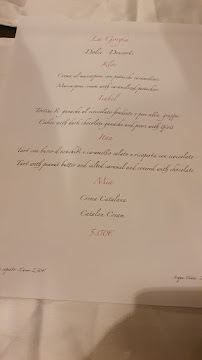 La Giogia
Dolci Dessert
Kloe
Crema al mascarpone con pistacchi caramellati
Mascarpone cream with caramelized pistachios
Isabel
Tortino di ganache al cioccolato fondente e pere alla grappa
Cookie with dark chocolate ganache and pears with spirit
Itan
Tart con burro d'arachidi e caramello salato e ricoperta con cioccolato
Tart with peanut butter and salted caramel and covered with chocolate
Mia
Crema Catalana
Catalan Cream
5.00€